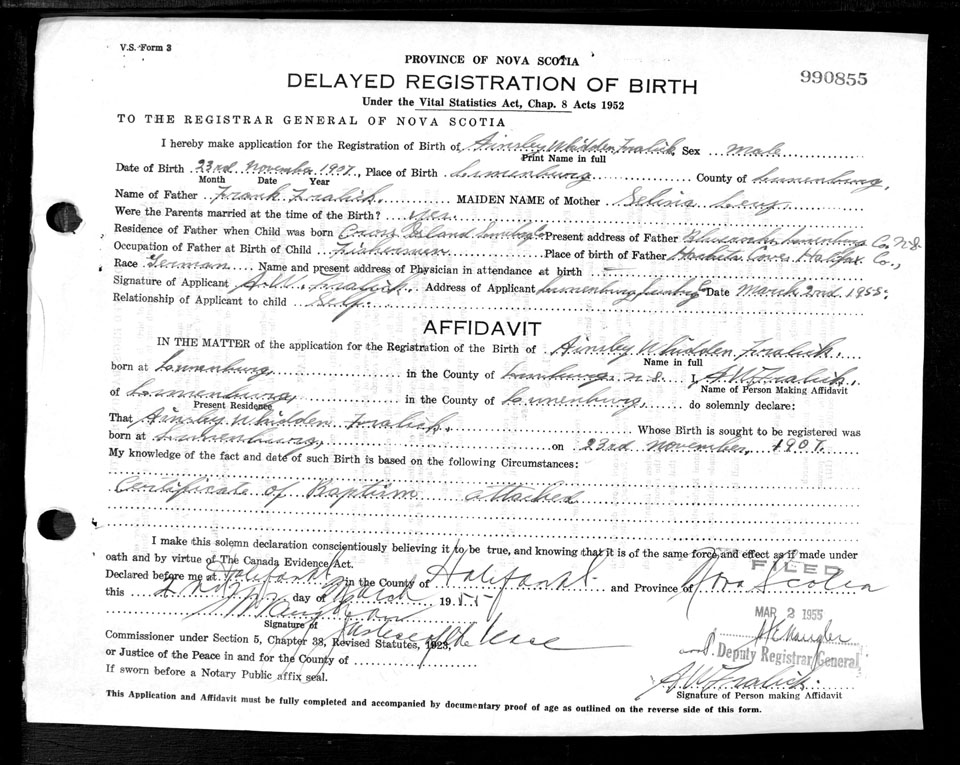 V.S. Form 3
PROVINCE OF NOVA SCOTIA
DELAYED REGISTRATION OF BIRTH
990855
Under the Vital Statistics Act, Chap. 8 Acts 1952
TO THE REGISTRAR GENERAL OF NOVA SCOTIA
I hereby make application for the Registration of Birth of Ainsley Whidden Fralick Sex male
Print Name in full
Date of Birth 23rd November 1907, Place of Birth Lunenburg County of Lunenburg,
Month Date Year
Name of Father Frank Fralick. MAIDEN NAME of Mother Selina
Were the Parents married at the time of the Birth? yes
Residence of Father when Child was born Island Present address of Father Lunenburg Co. N.S
Occupation of Father at Birth of Child Fisherman Place of birth of Father Cove Halifax Co.,
Race German Name and present address of Physician in attendance at birth —
Signature of Applicant A.W. Fralick. Address of Applicant Lunenburg Date March 2nd 1955.
Relationship of Applicant to child Self.
AFFIDAVIT
IN THE MATTER of the application for the Registration of the Birth of Ainsley Whidden Fralick.
Name in full
born at Lunenburg, in the County of N.S. I, A.W. Fralick.
Name of Person Making Affidavit
of Lunenburg, in the County of Lunenburg, do solemnly declare:
Present Residence
That Ainsley Whidden Fralick. Whose Birth is sought to be registered was
born at Lunenburg, on 23rd November, 1907.
My knowledge of the fact and date of such Birth is based on the following Circumstances:
Certificate of Baptism attached
I make this solemn declaration conscientiously believing it to be true, and knowing that it is of the same force and effect as if made under
oath and by virtue of The Canada Evidence Act.
FILED
Declared before me at Halifax in the County of Halifax and Province of Nova Scotia
this 2nd day of March 1955
MAR 2 1955
Signature of Justice of the Peace
Commissioner under Section 5, Chapter 38, Revised Statutes, 1923,
Deputy Registrar General
or Justice of the Peace in and for the County of
A.W. Fralick.
If sworn before a Notary Public affix seal.
Signature of Person making Affidavit
This Application and Affidavit must be fully completed and accompanied by documentary proof of age as outlined on the reverse side of this form.